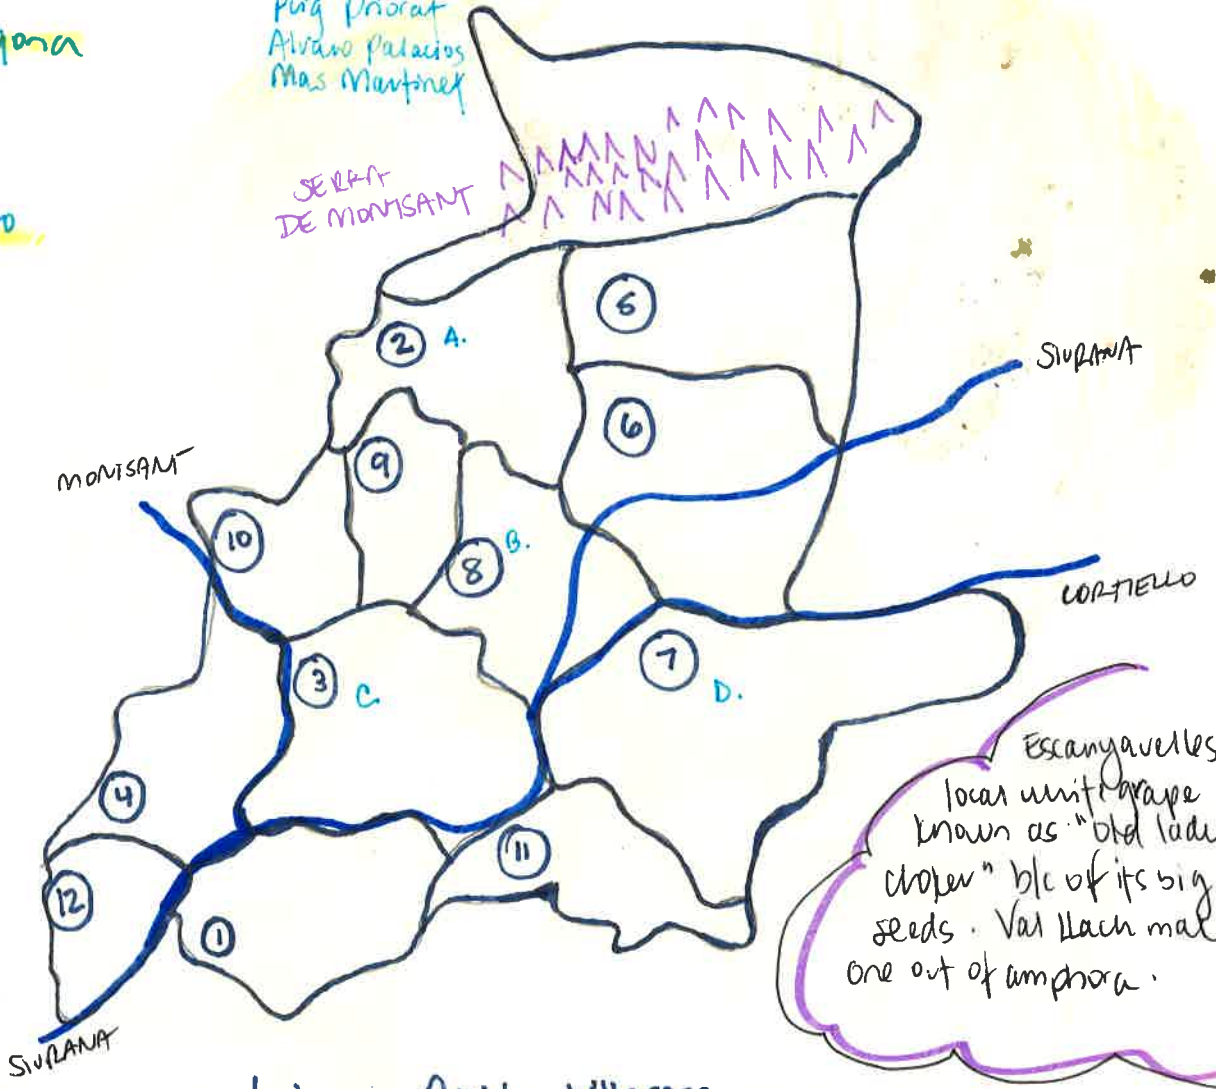 Puig Priorat
Alvaro Palacios
Mas Martinet
SERRA
DE MONTSANT
5
2 A.
SIURANA
6
9
MONTSANT
10
B.
8
CORTIELLO
7
3 C.
D.
4
11
12
1
SIURANA
Escanyavelles
local white grape
known as "old lad
choker" b/c of its big
seeds. Val Llach mak
one out of amphora.